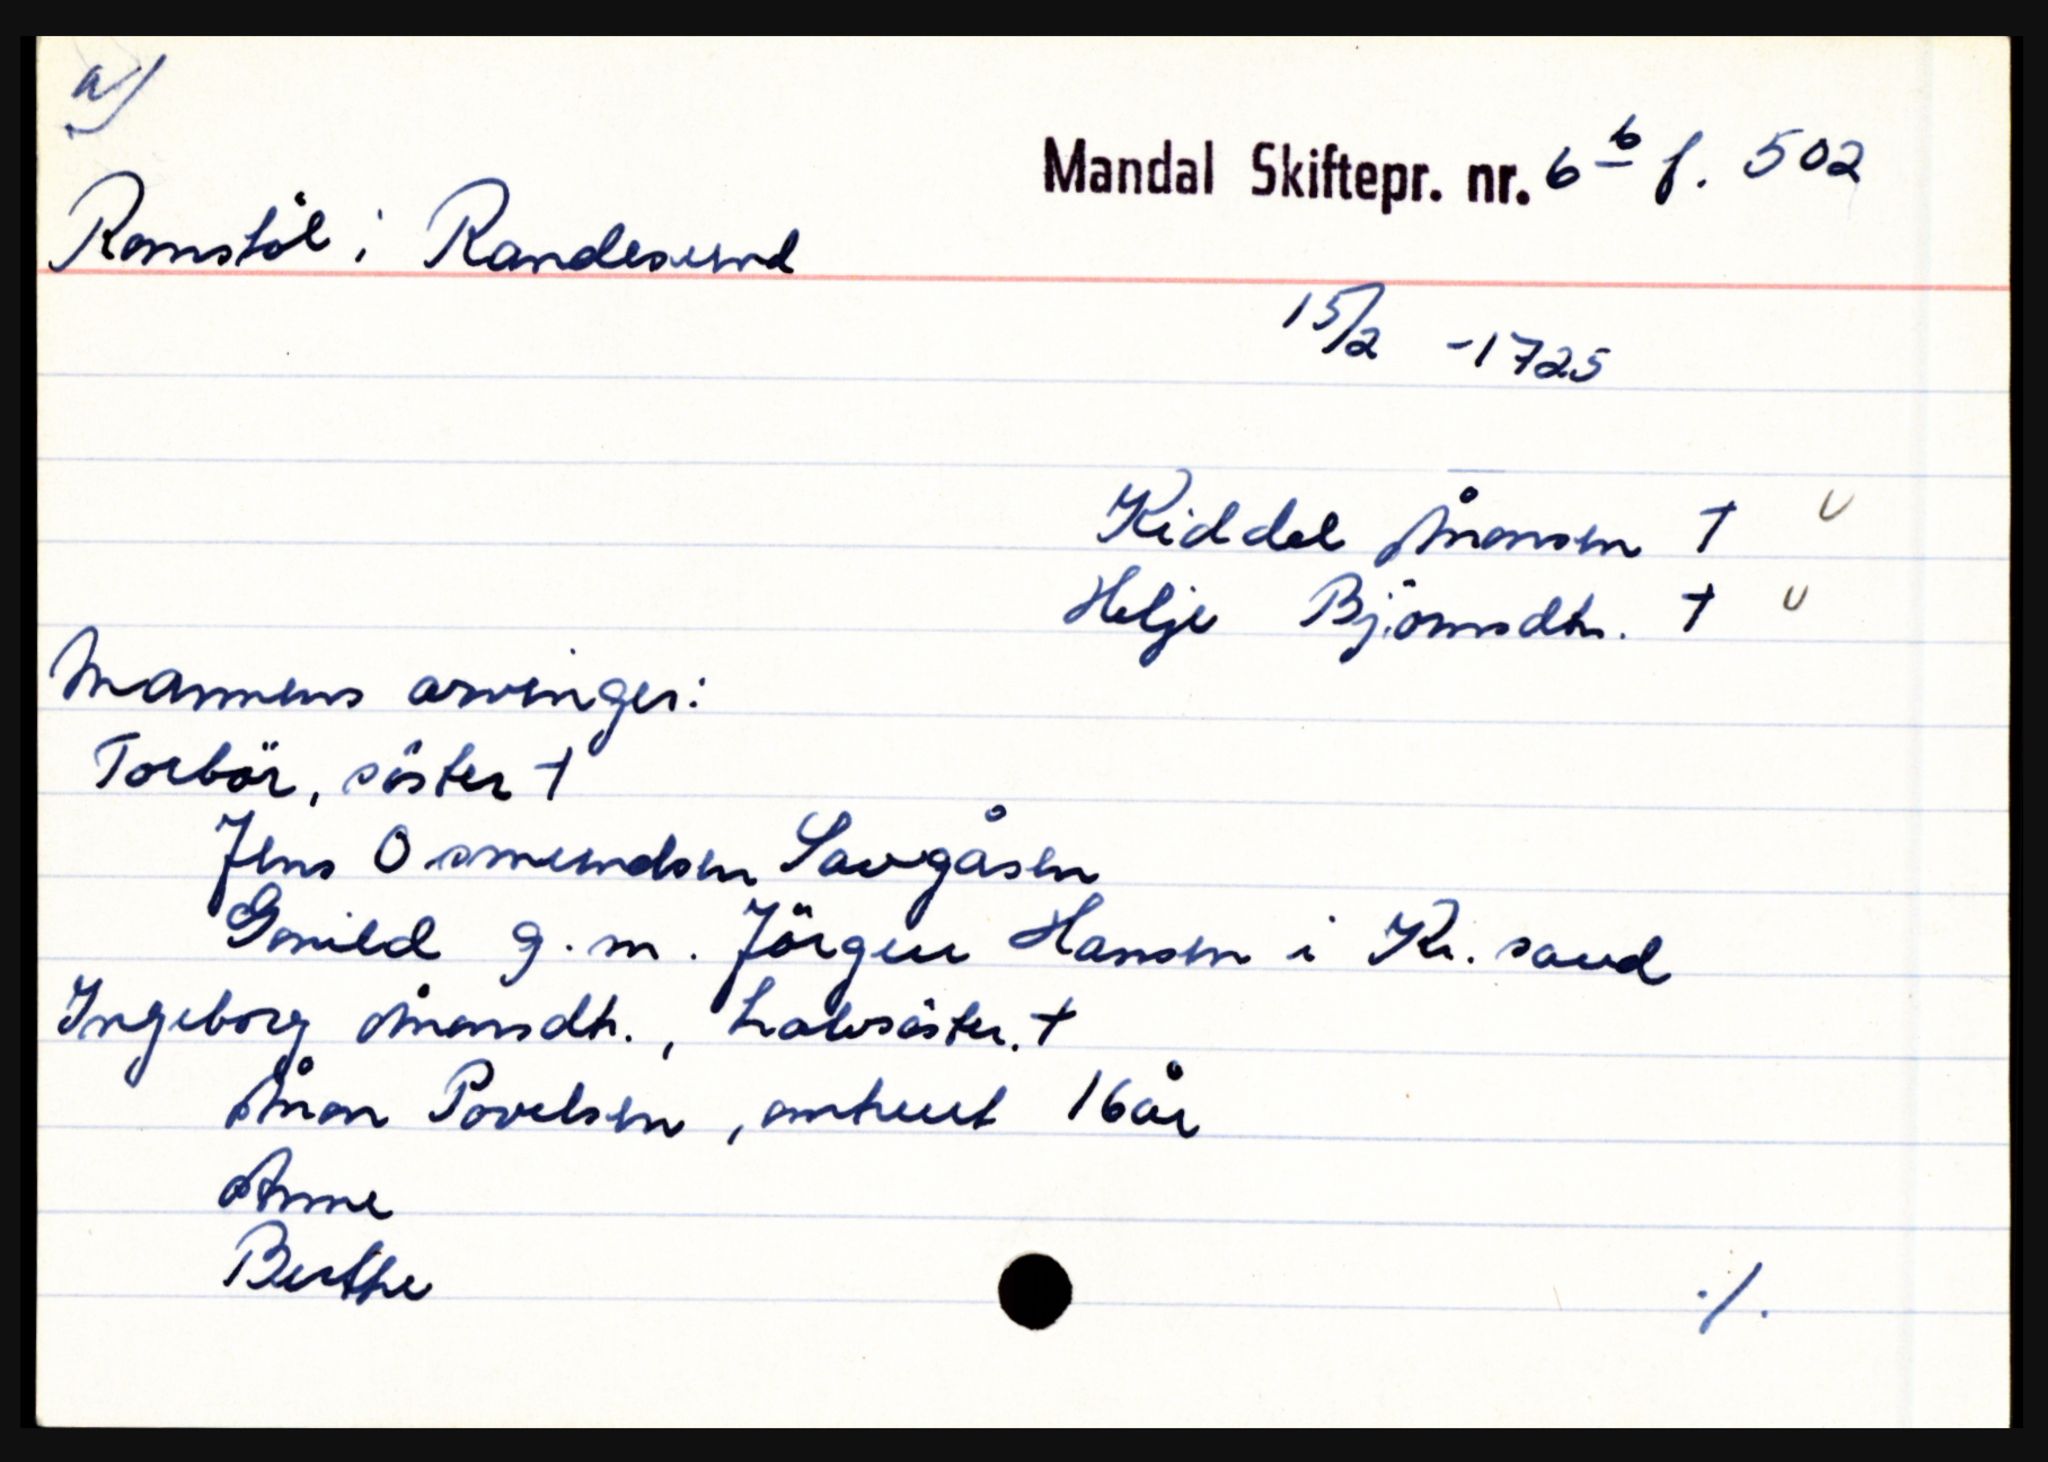 a)
Mandal Skiftepr. nr. 6 b f. 502
Romstöl i Randesund
15/2 -1725
Kiddel Ånonsen †
Helje Björnsdtr. †
Mannens arvinger:
Torbör, söster †
Jens Osmundsen Savgåsen
Gonild g. m. Jörgen Hansen i Kr. sand
Ingeborg Ånonsdtr., halvsöster. †
Ånon Povelsen, omtrent 16 år
Anne
Berthe
./.